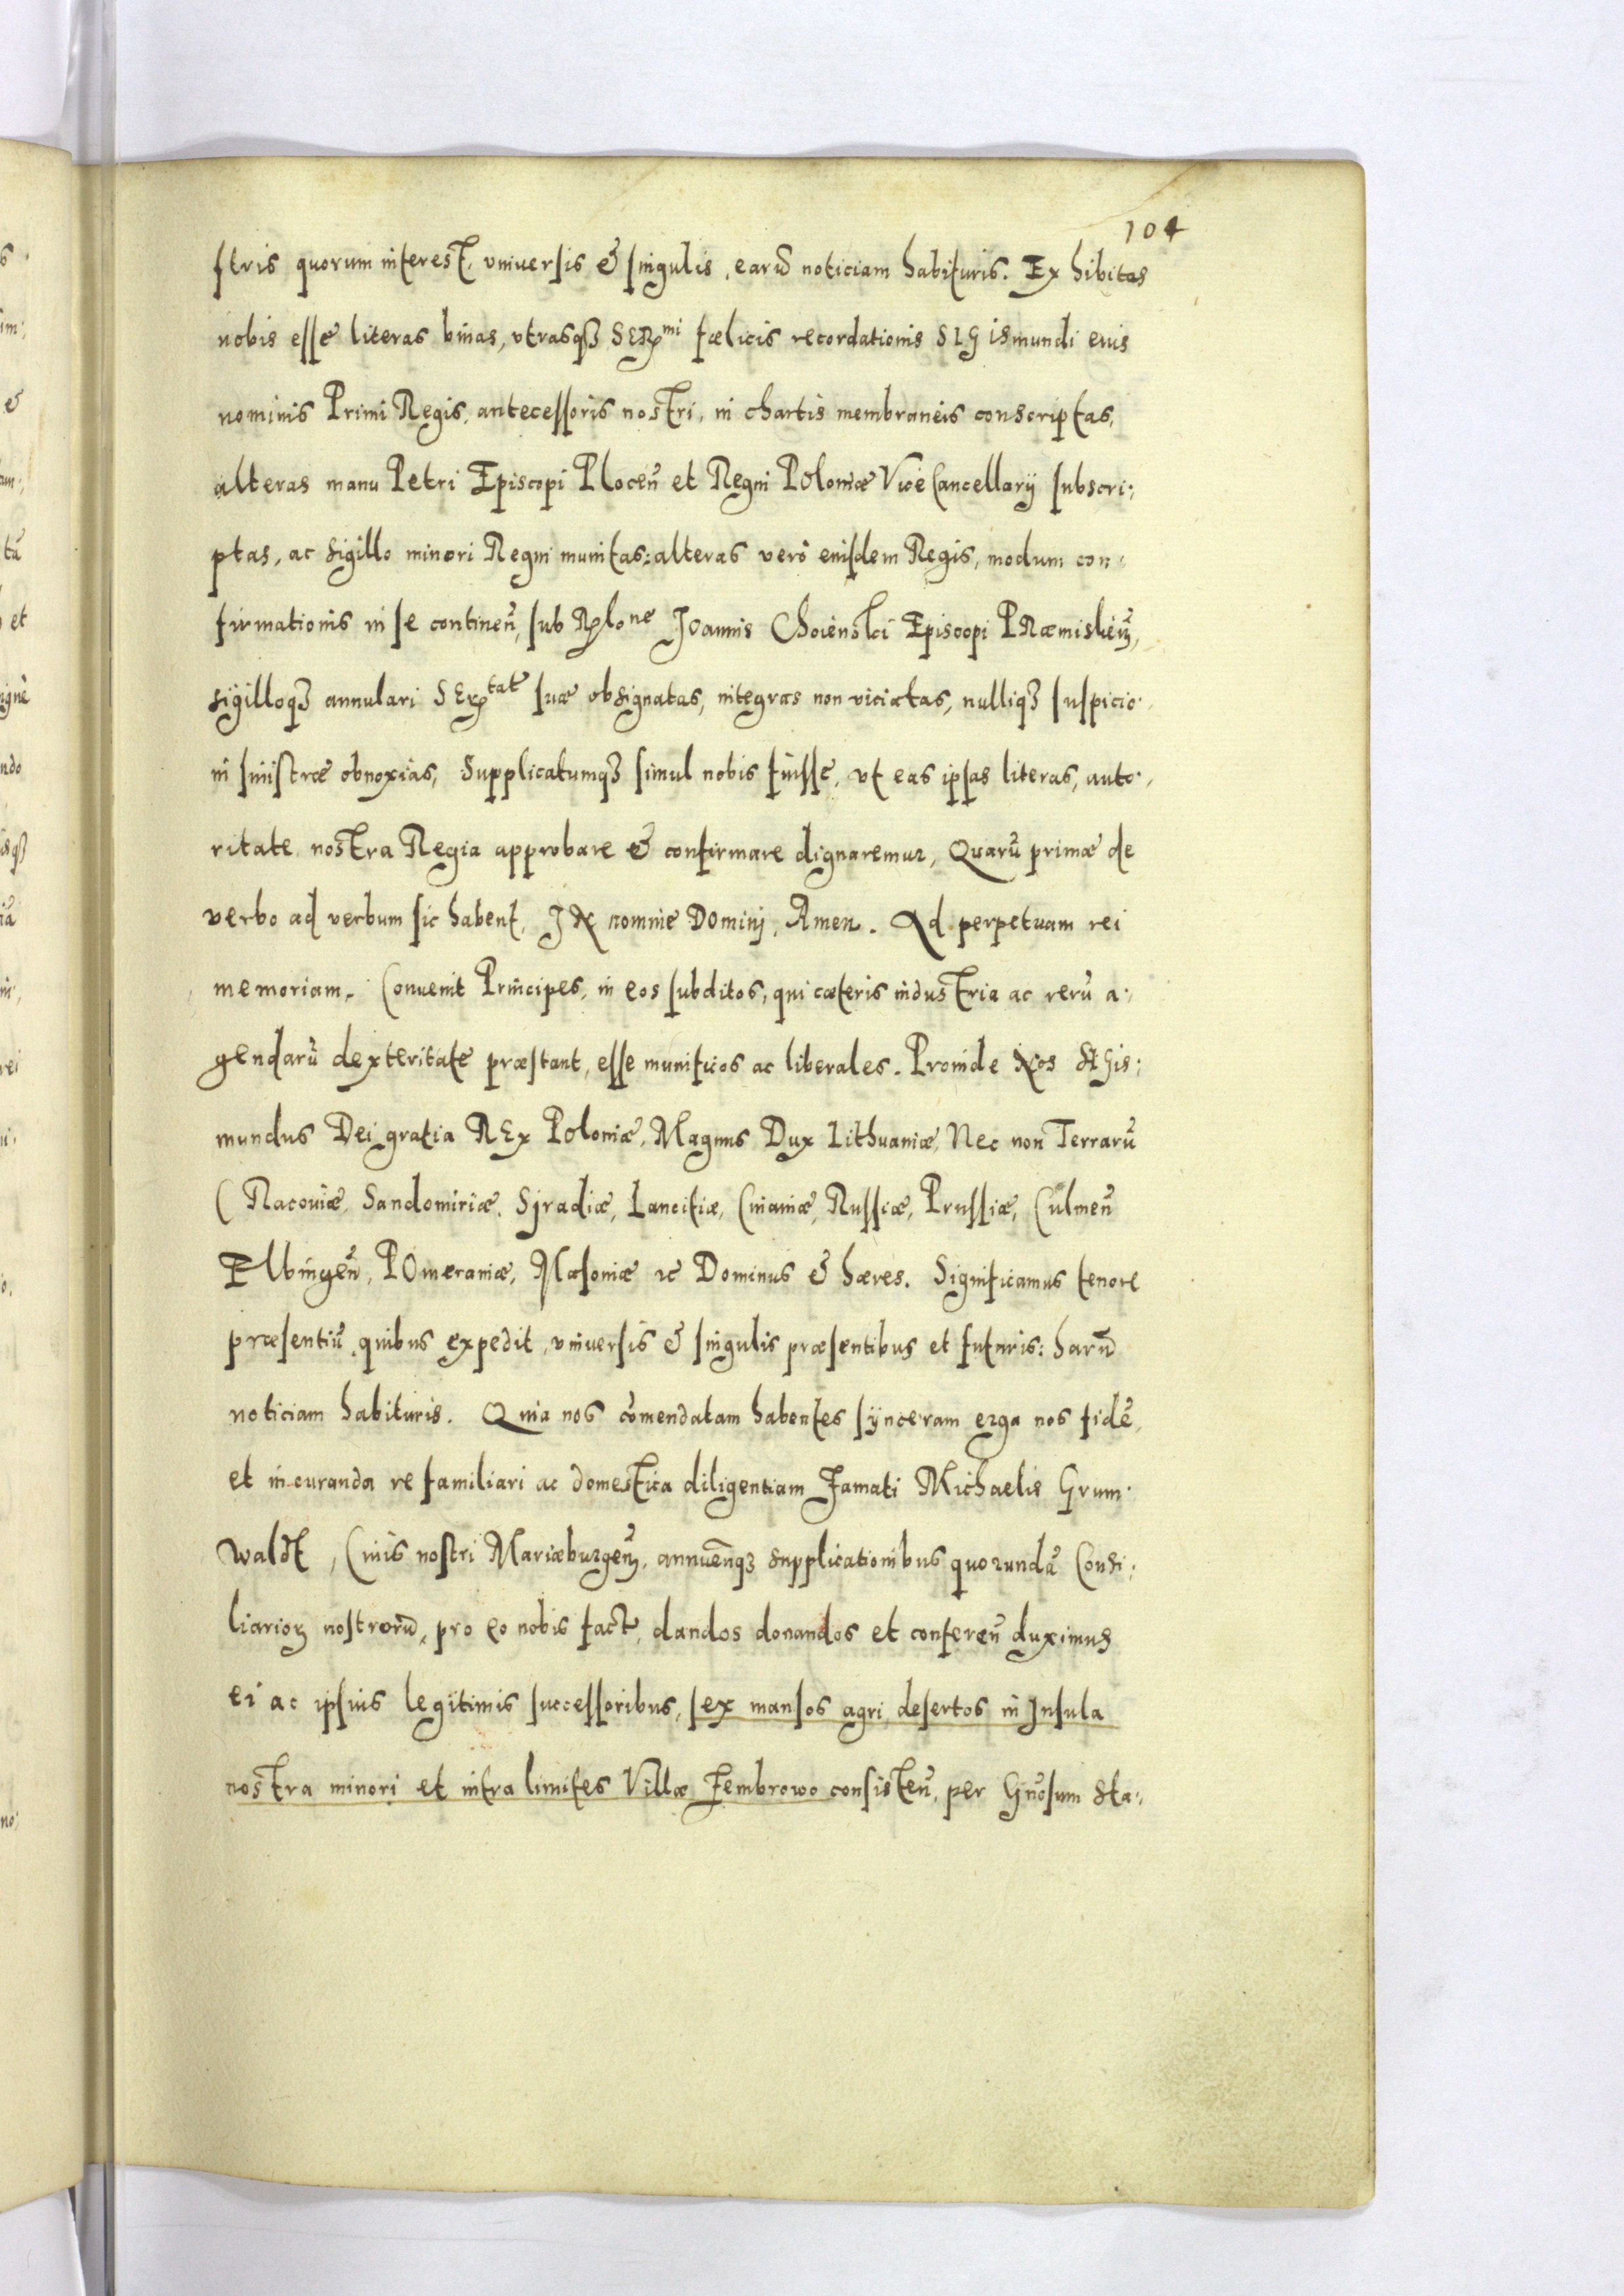 104
steris quorum interest, vniuersis & singulis, earū noticiam habituris. Exhibitas
nobis esse literas binas, vtrasqꝫ SERmi fœlicis recordationis SIGismundi eius
nominis Primi Regis, antecessoris nostri, in chartis membraneis conscriptas,
alteras manu Petri Episcopi Plocen̄ et Regni Poloniæ Vice Cancellarij subscri:
ptas, ac sigillo minori Regni munitas: alteras verò eiusdem Regis, modum con:
firmationis in se continen̄, sub Rlone Joannis Choienski Episcopi PRæmislien̄,
sigilloqꝫ annulari SERtat suæ obsignatas, integras non viciatas, nulliqꝫ suspicio:
ni sinistræ obnoxias, Supplicatumqꝫ simul nobis fuisse, vt eas ipsas literas, auto:
ritate nostra Regia approbare & confirmare dignaremur, Quarū primæ de
verbo ad verbum sic habent, IN nomine Dominj, Amen. Ad perpetuam rei
memoriam. Conuenit Principes, in eos subditos, qui cæteris industria ac rerū a:
gendarū dexteritate præstant, esse munificos ac liberales. Proinde Nos SIGis:
mundus Dei gratia REx Poloniæ, Magnus Dux Lithuaniæ, Nec non Terrarū
CRacouiæ, Sandomiriæ, Syradiæ, Lancitiæ, Cuiauiæ, Russiæ, Prussiæ, Culmen̄
Elbingen̄, POmeraniæ, Masouiæ ꝛc Dominus & hæres. Significamus tenore
præsentiū quibus expedit, vniuersis & singulis præsentibus et futuris: harū
noticiam habituris. Quia nos com̄endatam habentes synceram erga nos fidē,
et in curanda re familiari ac domestica diligentiam Famati Michaelis Grum:
waldt, Ciuis nostri Mariæburgen̄, annuen̄qꝫ supplicationibus quorundā Consi:
liarioꝝ nostrorū, pro eo nobis fact, dandos donandos et conferen̄ duximus
ei ac ipsius legitimis successoribus, sex mansos agri desertos in Insula
nostra minori et infra limites Villæ Fembrowo consisten̄, per Gn̄osum Sta: